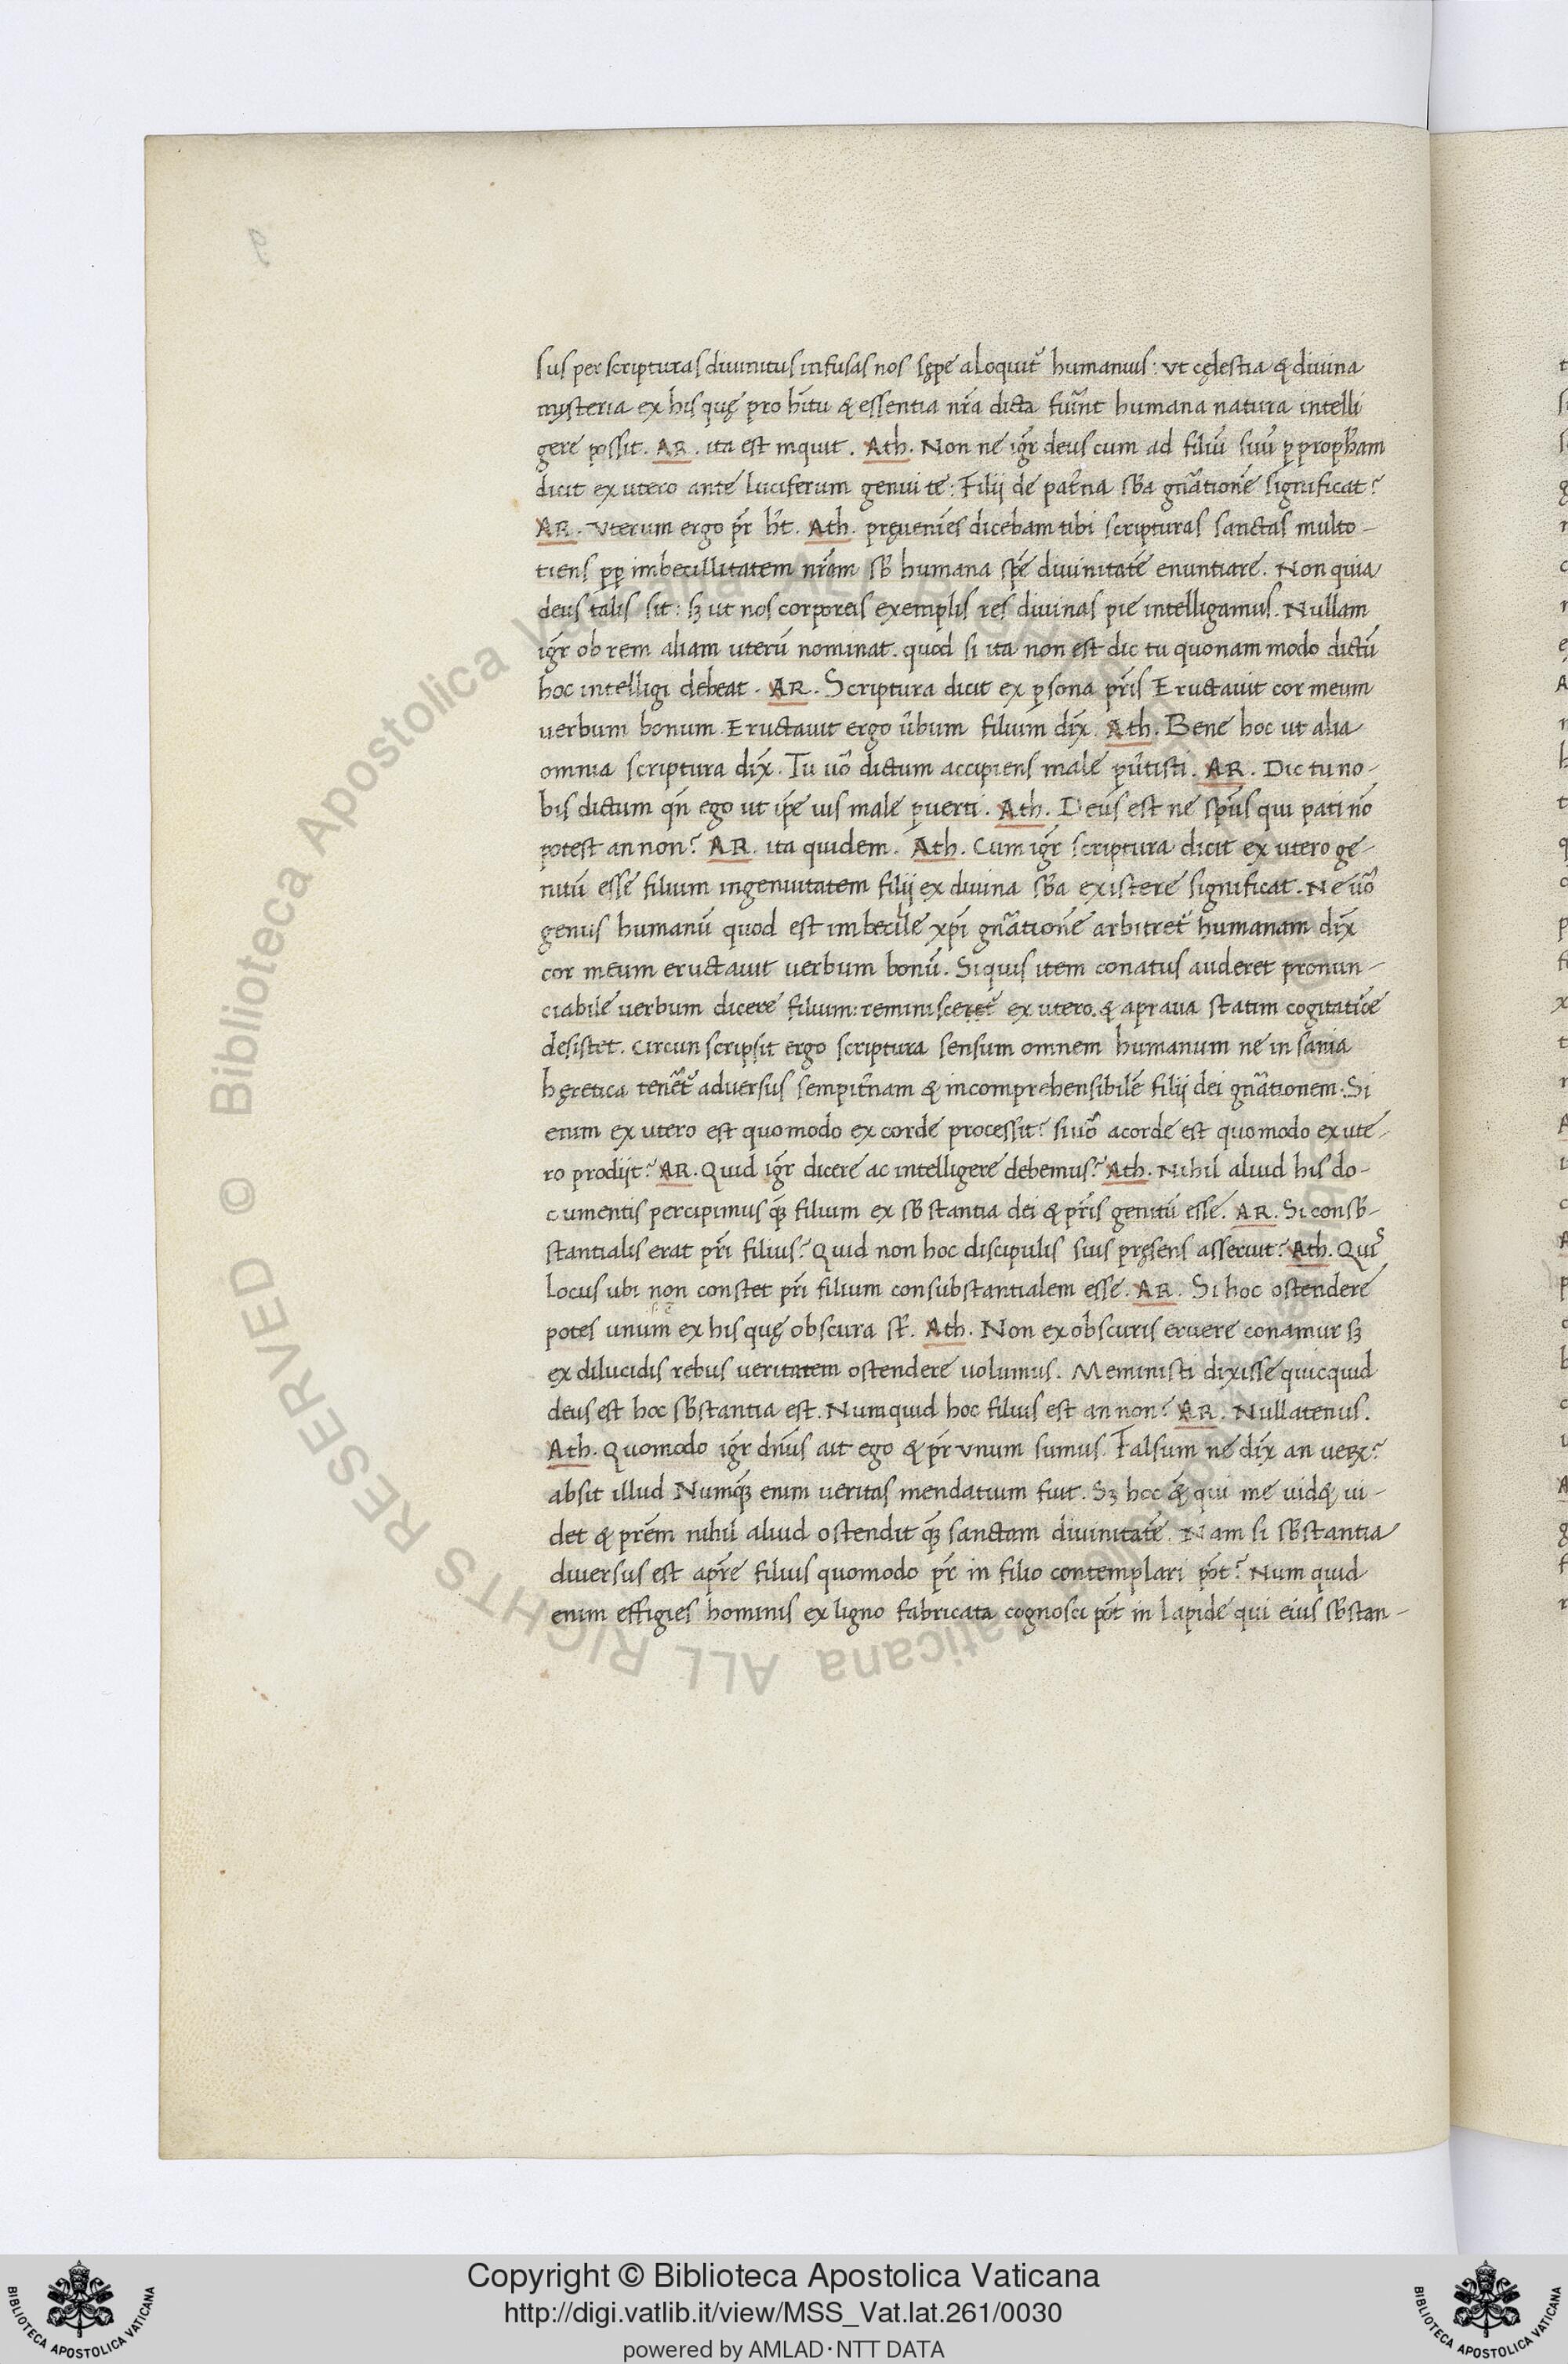 sus per scripturas diuinitus infusas nos sępe aloquit᷑ humanius: vt cęlestia & diuina
mysteria ex his quę pro hītu & essentia nr̄a dicta fuīnt humana natura intelli
gere possit. AR. ita est inquit. Ath. Non ne igr̄ deus cum ad filiū suū ꝑ propħam
dicit ex utero ante luciferum genui te: Filij de pat̄na sƀa gn̄ationē significat?
AR. Vterum ergo pr̄ ħt. Ath. pręueniēs dicebam tibi scripturas sanctas multo-
tiens ꝓp imbecillitatem nr̄am sƀ humana spē diuinitatē enuntiare. Non quia
deus talis sit: sꝫ ut nos corporeis exemplis res diuinas pie intelligamus. Nullam
igr̄ ob rem aliam uterū nominat. quod si ita non est dic tu quonam modo dictū
hoc intelligi debeat. AR. Scriptura dicit ex ꝑsona pr̄is Eructauit cor meum
uerbum bonum. Eructauit ergo ūbum filium dix̄. Ath. Bene hoc ut alia
omnia scriptura dix̄. Tu uō dictum accipiens male ꝑūtisti. AR. Dic tu no-
bis dictum qn̄ ego ut ip̄e uis male ꝑuerti. Ath. Deus est ne sp̄us qui pati nō
potest an non? AR. ita quidem. Ath. Cum igr̄ scriptura dicit ex utero ge-
nitū esse filium ingenuitatem filij ex diuina sƀa existere significat. Ne uō
genus humanū quod est imbecille xp̄i gn̄ationē arbitret᷑ humanam dix̄
cor meum eructauit uerbum bonū. Siquis item conatus auderet pronun-
ciabile uerbum dicere filium: reminisceret᷑ ex utero. & a praua statim cogitatiōe
desistet. Circunscripsit ergo scriptura sensum omnem humanum ne insania
hęretica tenēt᷑ aduersus sempit̄nam & incomprehensibilē filij dei gn̄ationem. Si
enim ex utero est quomodo ex corde processit? si uō a corde est quomodo ex ute-
ro prodijt? AR. Quid igr̄ dicere ac intelligere debemus? Ath. Nihil aliud his do-
cumentis percipimus qꝫ filium ex sƀstantia dei & pr̄is genitū esse. AR. Si consƀ-
stantialis erat pr̄i filius? Quid non hoc discipulis suis pręsens asseruit? Ath. Quis
locus ubi non constet pr̄i filium consubstantialem esse. AR. Si hoc ostendere
potes unum ex his quę obscura st̄. Ath. Non ex obscuris eruere conamur sꝫ
ex dilucidis rebus ueritatem ostendere uolumus. Meministi dixisse quicquid
deus est hoc sƀstantia est. Numquid hoc filius est an non? AR. Nullatenus.
Ath. Quomodo igr̄ dn̄us ait ego & pr̄ vnum sumus. Falsum ne dix̄ an uerę?
absit illud Numqꝫ enim ueritas mendatium fuit. Sꝫ hoc & qui me uid& ui-
det & pr̄em nihil aliud ostendit qꝫ sanctam diuinitatē. Nam si sƀstantia
diuersus est a pr̄e filius quomodo pr̄ in filio contemplari pōt? Num quid
enim effigies hominis ex ligno fabricata cognosci pōt in lapide qui eius sƀstan-
Copyright © Biblioteca Apostolica Vaticana
http://digi.vatlib.it/view/MSS_Vat.lat.261/0030
powered by AMLAD·NTT DATA
BIBLIOTECA APOSTOLICA VATICANA
BIBLIOTECA APOSTOLICA VATICANA